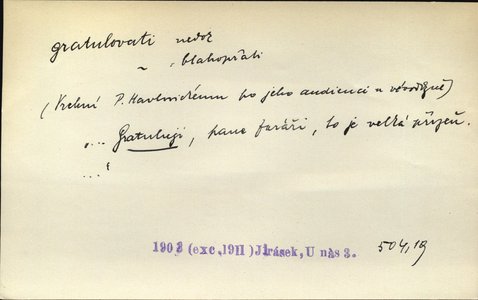 gratulovati nedok
~ , blahopřáti
(Vrchní P. Havlovickému po jeho audienci u vévodkyně)
„... Gratuluji, pane faráři, to je velká přízeň.
..."
1903 (exc.1911) Jirásek, U nás 3. 504,19